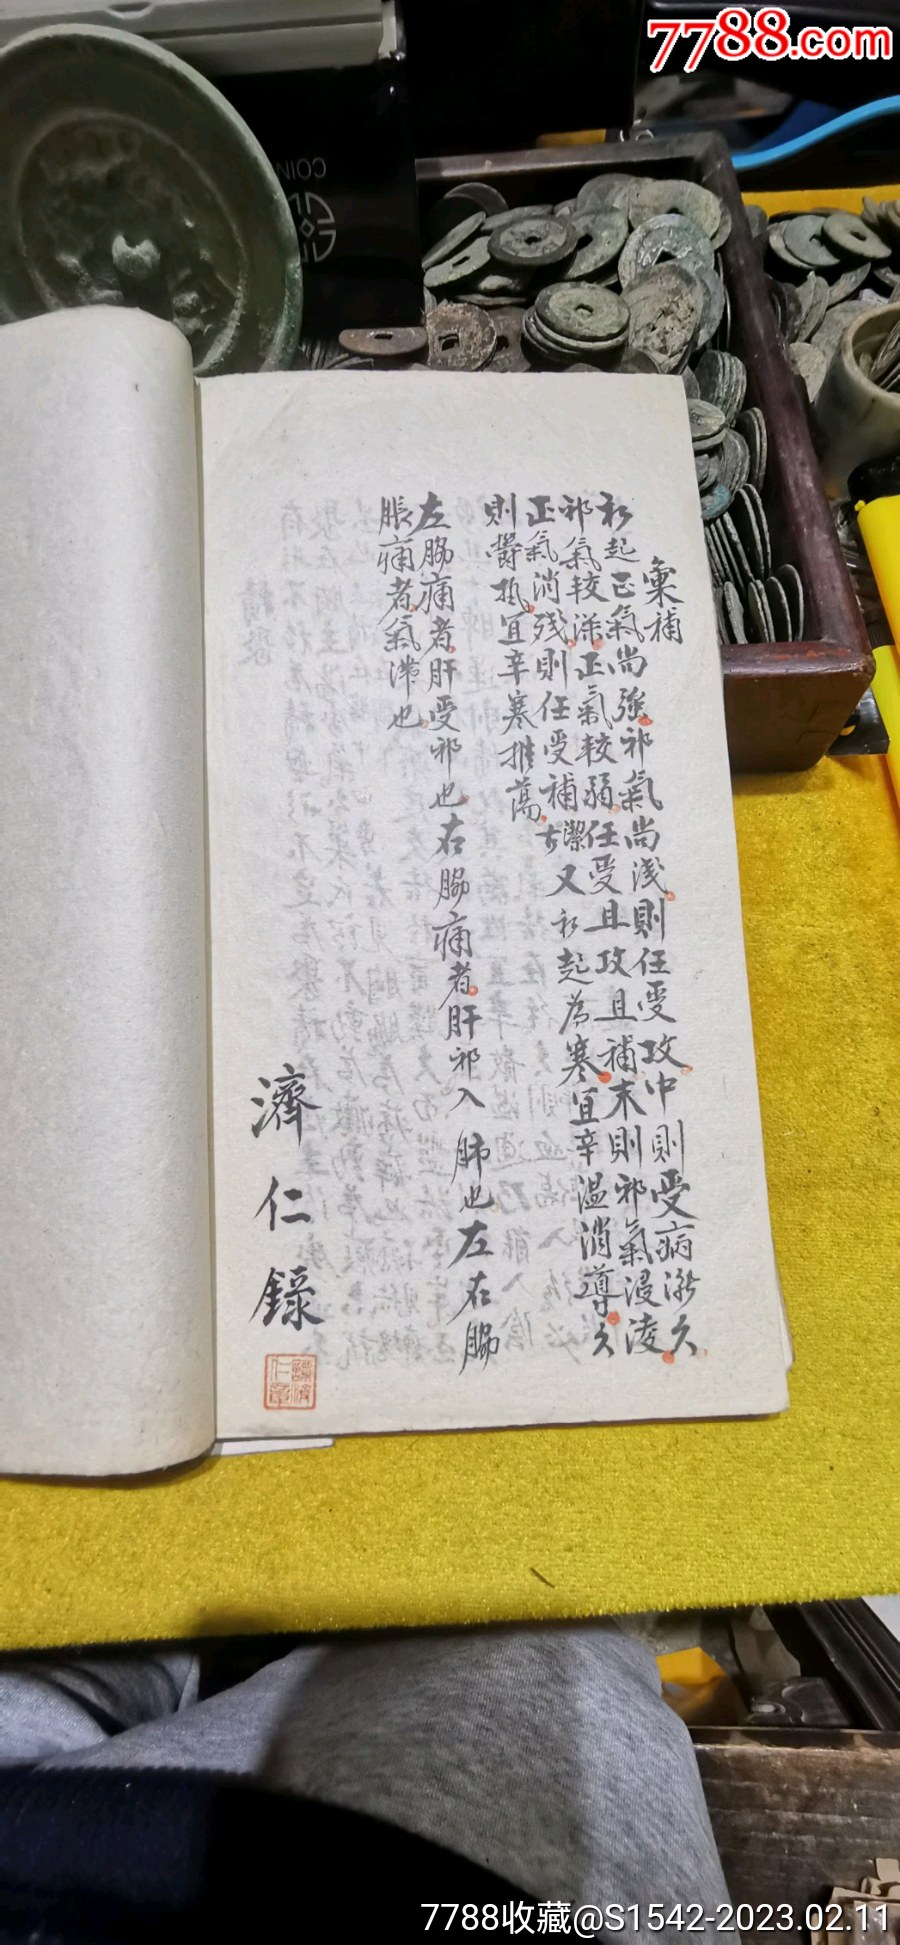 7788.com
COIN
彙補
初起正氣尚強邪氣尚淺則任受攻中則受病漸久
邪氣較深正氣較弱任受且攻且補末則邪氣浸淩
正氣消殘則任受補 又初起為寒宜辛溫消導久
則鬱執宜辛寒推蕩
左脇痛者肝受邪也右脇痛者肝邪入肺也左右脇
脹痛者氣滯也
濟仁錄
7788收藏@S1542-2023.02.11